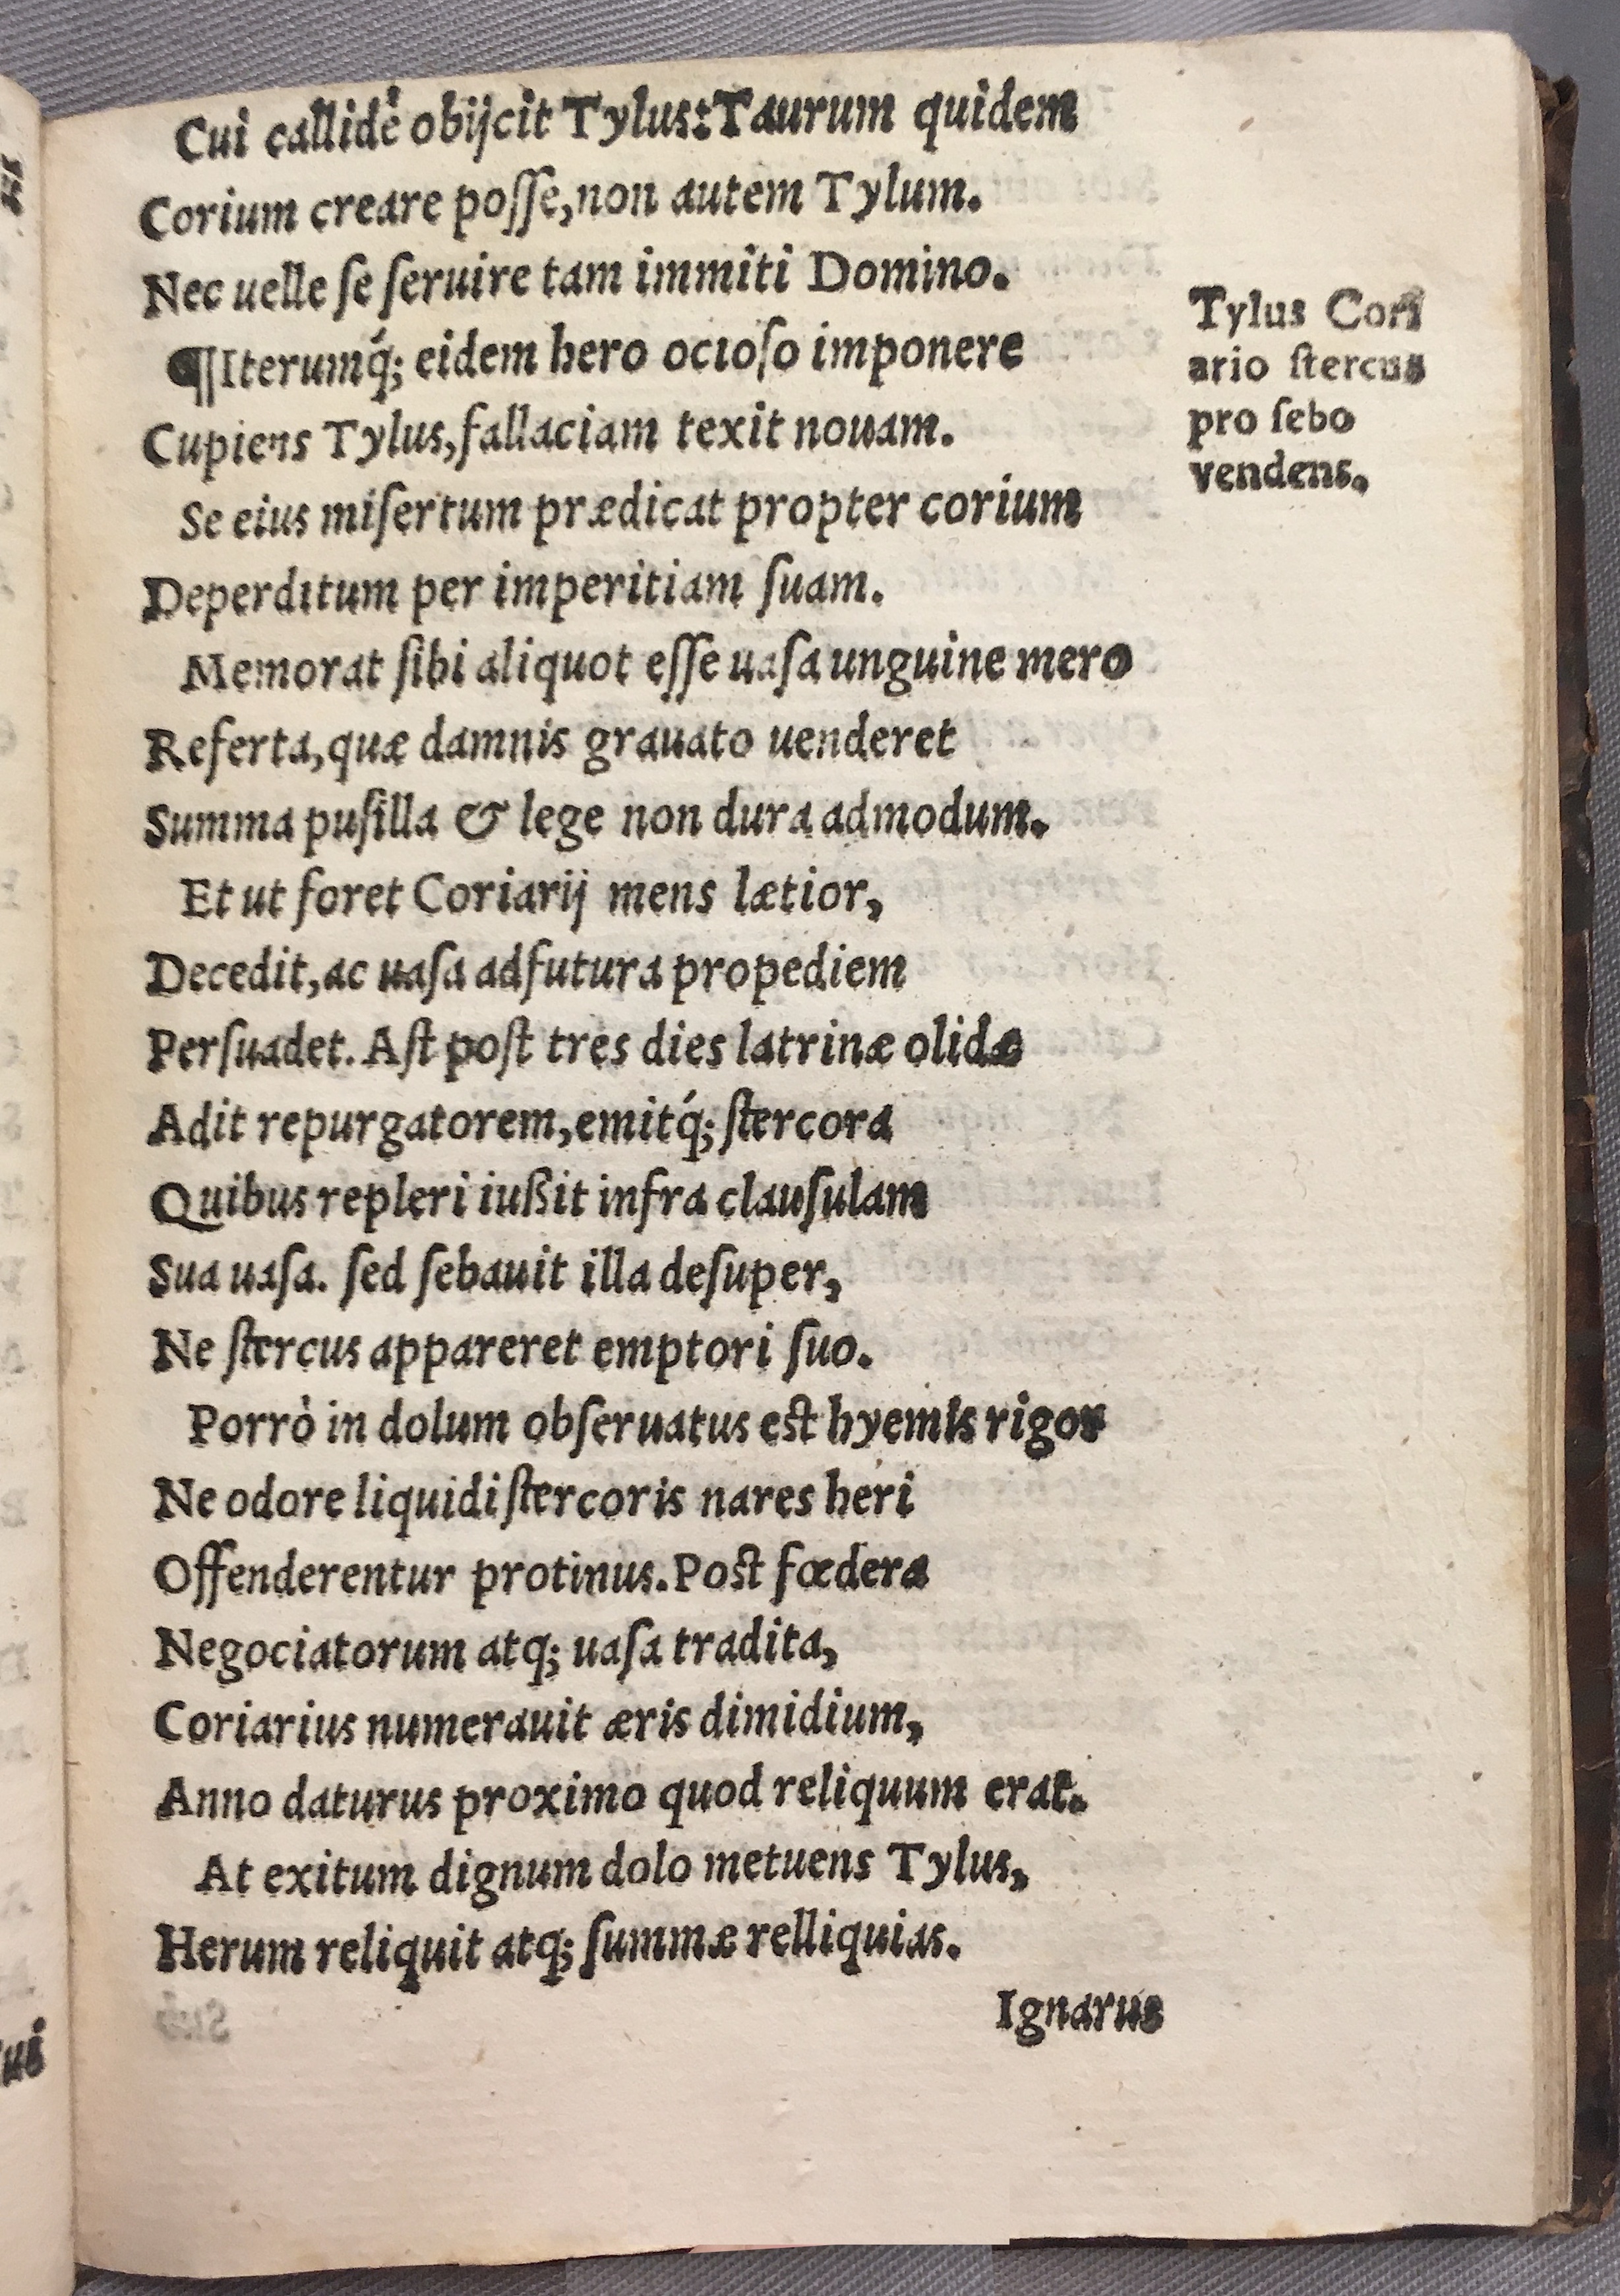 Cui callidè obijcit Tylus: Taurum quidem
Corium creare poſſe, non autem Tylum.
Nec uelle ſe ſeruire tam immiti Domino.
¶Iterumq́; eidem hero ocioſo imponere
Cupiens Tylus, fallaciam texit nouam.
Se eius miſertum prædicat propter corium
Deperditum per imperitiam ſuam.
Memorat ſibi aliquot eſſe uaſa unguine mero
Referta, quæ damnis grauato uenderet
Summa puſilla & lege non dura admodum.
Et ut foret Coriarij mens lætior,
Decedit, ac uaſa adfutura propediem
Perſuadet. Aſt poſt tres dies latrinæ olidæ
Adit repurgatorem, emitq́; ſtercora
Quibus repleri iußit infra clauſulam
Sua uaſa. ſed ſebauit illa deſuper,
Ne ſtercus appareret emptori ſuo.
Porrò in dolum obſeruatus eſt hyemis rigor
Ne odore liquidi ſtercoris nares heri
Offenderentur protinus. Poſt fœdera
Negociatorum atq; uaſa tradita,
Coriarius numerauit æris dimidium,
Anno daturus proximo quod reliquum erat.
At exitum dignum dolo metuens Tylus,
Herum reliquit atq; ſummæ relliquias.
Ignarus
Tylus Cori
ario ſtercus
pro ſebo
vendens.